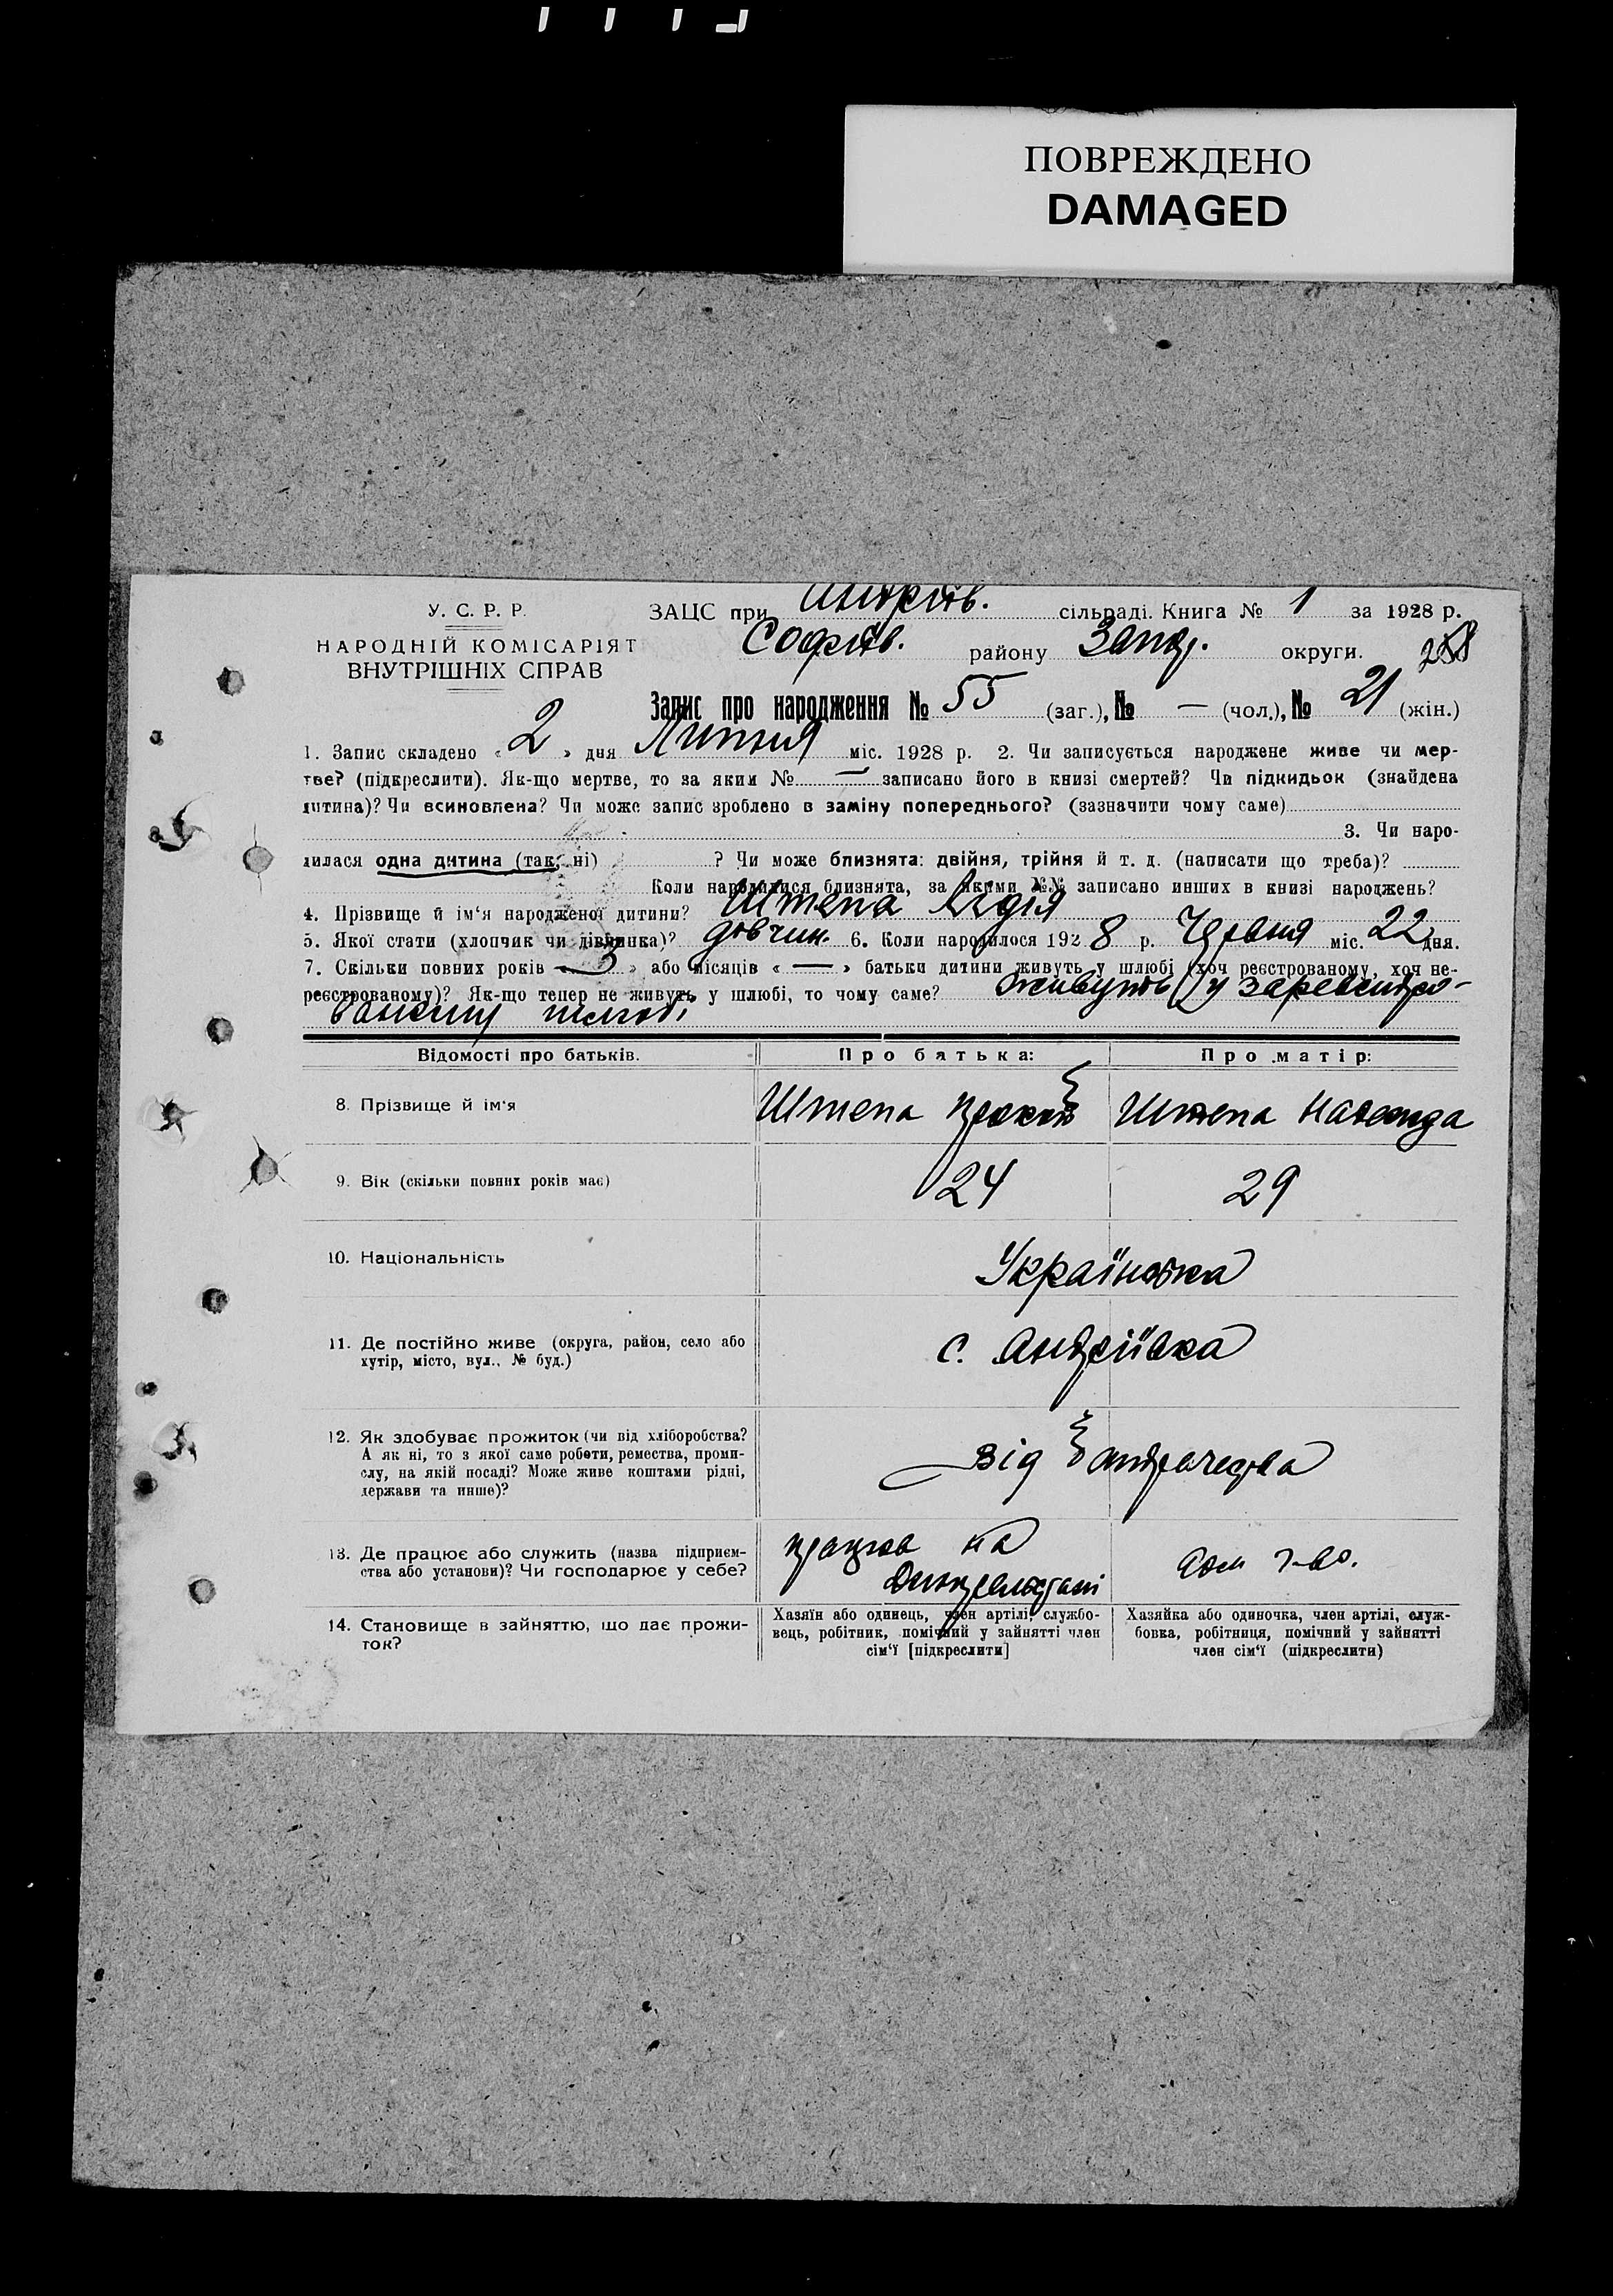 ПОВРЕЖДЕНО
DAMAGED
У. С. Р. Р.
НАРОДНІЙ КОМІСАРІЯТ
ВНУТРІШНІХ СПРАВ
ЗАЦС при Андріїв. сільраді. Книга № 1 за 1928 р.
Софіїв. району Запор. округи.
Запис про народження № 55 (заг.), № — (чол.), № 21 (жін.)
1. Запис складено « 2 » дня Липня міс. 1928 р. 2. Чи записується народжене живе чи мер-
тве? (підкреслити). Як-що мертве, то за яким № — записано його в книзі смертей? Чи підкидьок (знайдена
дитина)? Чи всиновлена? Чи може запис зроблено в заміну попереднього? (зазначити чому саме)
3. Чи наро-
дилася одна дитина (так, ні) ? Чи може близнята: двійня, трійня й т. д. (написати що треба)?
Коли народилися близнята, за якими №№ записано инших в книзі народжень?
4. Прізвище й ім‘я народженої дитини? Штепа Лідія
5. Якої стати (хлопчик чи дівчинка)? довчин. 6. Коли народилося 192 8 р. Червня міс. 22 дня.
7. Скільки повних років « 3 » або місяців « — » батьки дитини живуть у шлюбі (хоч реєстрованому, хоч не-
реєстрованому)? Як-що тепер не живуть у шлюбі, то чому саме? живуть у зареєстро-
ваному шлюбі
Відомості про батьків. Про батька: Про матір:
8. Прізвище й ім‘я Штепа Штепа Надежда
9. Вік (скільки повних років має) 24 29
10. Національність Українська
11. Де постійно живе (округа, район, село або
хутір, місто, вул., № буд.) с. Андріївка
12. Як здобуває прожиток (чи від хліборобства?
А як ні, то з якої саме роботи, ремества, проми-
слу, на якій посаді? Може живе коштами рідні,
держави та инше)? від
13. Де працює або служить (назва підприєм-
ства або установи)? Чи господарює у себе? працює на
Дніпрельстані дом г-во.
14. Становище в зайняттю, що дає прожи-
ток?
Хазяїн або одинець, член артілі, службо-
вець, робітник, помічний у зайнятті член
сім‘ї [підкреслити]
Хазяйка або одиночка, член артілі, служ-
бовка, робітниця, помічний у зайнятті
член сім‘ї (підкреслити)